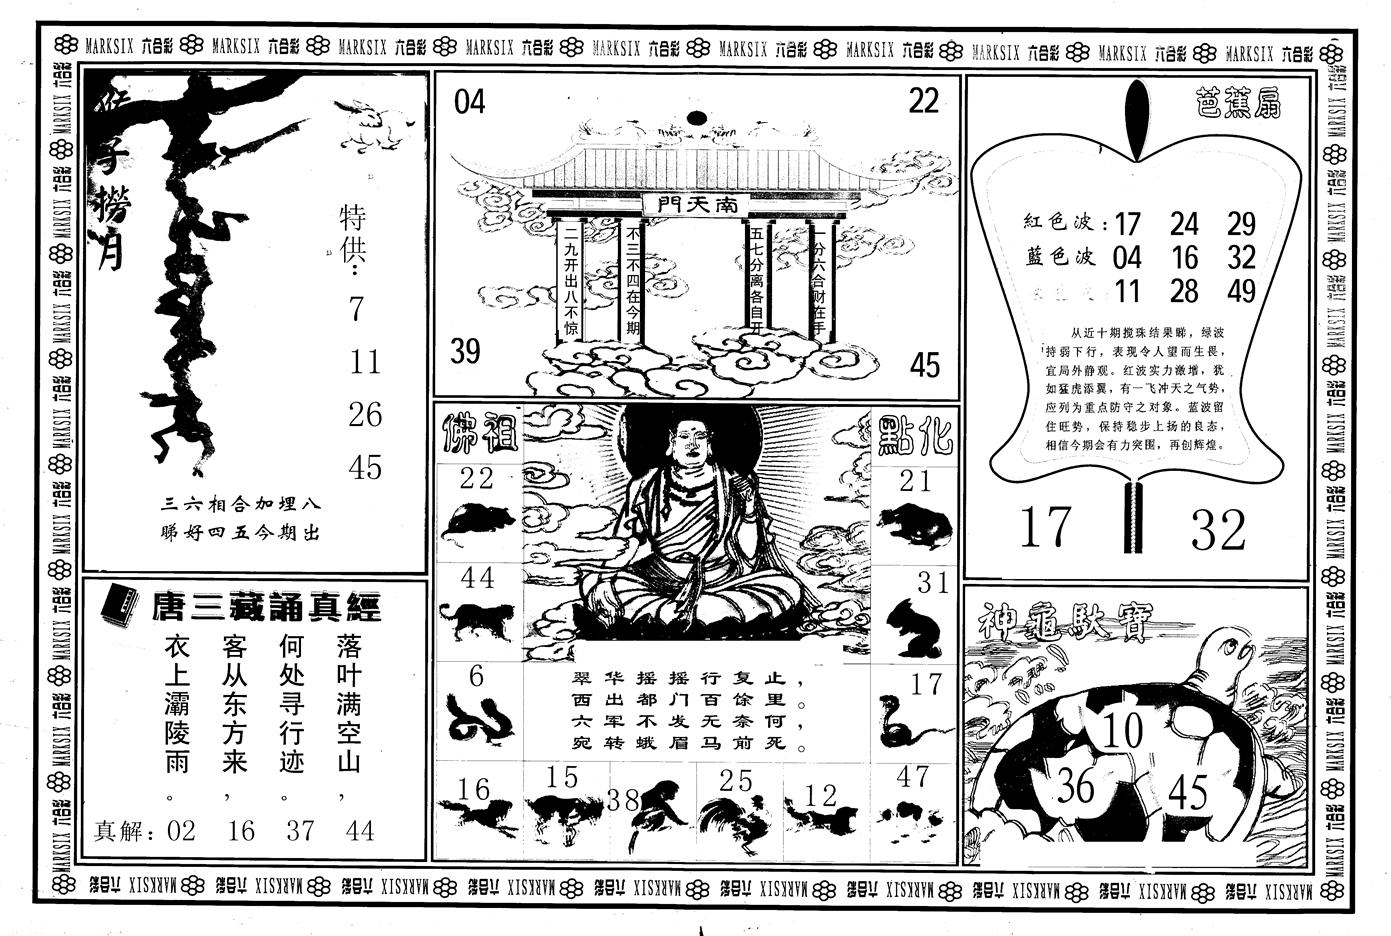 MARKSIX 六合彩 MARKSIX 六合彩 MARKSIX 六合彩 MARKSIX 六合彩 MARKSIX 六合彩 MARKSIX 六合彩 MARKSIX 六合彩 MARKSIX 六合彩 MARKSIX 六合彩 MARKSIX 六合彩
猴子撈月
特供：
7
11
26
45
三六相合加埋八
睇好四五今期出
唐三藏誦真經
落叶满空山，
何处寻行迹。
客从东方来，
衣上灞陵雨。
真解：02 16 37 44
04 22
門天南
一分六合财在手
五七分离各自开
不三不四在今期
二九开出八不惊
39 45
佛祖 點化
22 21
44 31
6 17
翠华摇摇行复止，
西出都门百馀里。
六军不发无奈何，
宛转蛾眉马前死。
16 15 38 25 12 47
芭蕉扇
紅色波：17 24 29
藍色波 04 16 32
11 28 49
从近十期搅珠结果睇，绿波
持弱下行，表现令人望而生畏，
宜局外静观。红波实力激增，犹
如猛虎添翼，有一飞冲天之气势，
应列为重点防守之对象。蓝波留
住旺势，保持稳步上扬的良态，
相信今期会有力突围，再创辉煌。
17 32
神龜馱寶
10
36 45